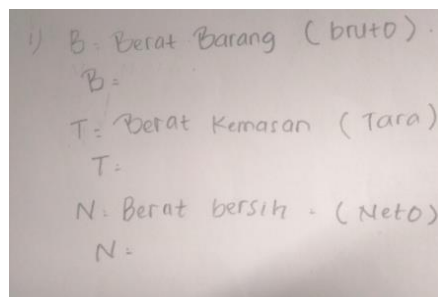 1) B = Berat Barang (bruto).
B =
T = Berat Kemasan (Tara)
T =
N = Berat bersih = (Neto)
N =